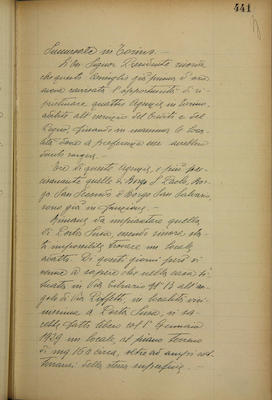 441
Succursale in Torino.
Il Sig. Signor Presidente ricorda
che questo Consiglio già prima d'ora
aveva ravvisata l'opportunità di ri-
pristinare quattro Agenzie in Torino,
adibite all'esercizio del Credito e del
Pegno,
Tra di queste Agenzie, e più pre-
cisamente quelle di Borgo S. Paolo, Bor-
go San Secondo e Borgo San Salvario
sono già in funzione.
Rimane da impiantare quella
di Porta Susa, essendo sinora sta-
ta impossibile trovare un locale
adatto. Di questi giorni però si
venne a sapere che nella casa si-
tuata in Via Cibrario N° 13 all'an-
golo di Via Piffetti, in località vici-
nissima a Porta Susa, si sa-
rebbe fatto libero col 1° Gennaio
1929 un locale, al piano terreno
di mq 150 circa, oltre ad ampi sot-
terranei della stessa superficie.